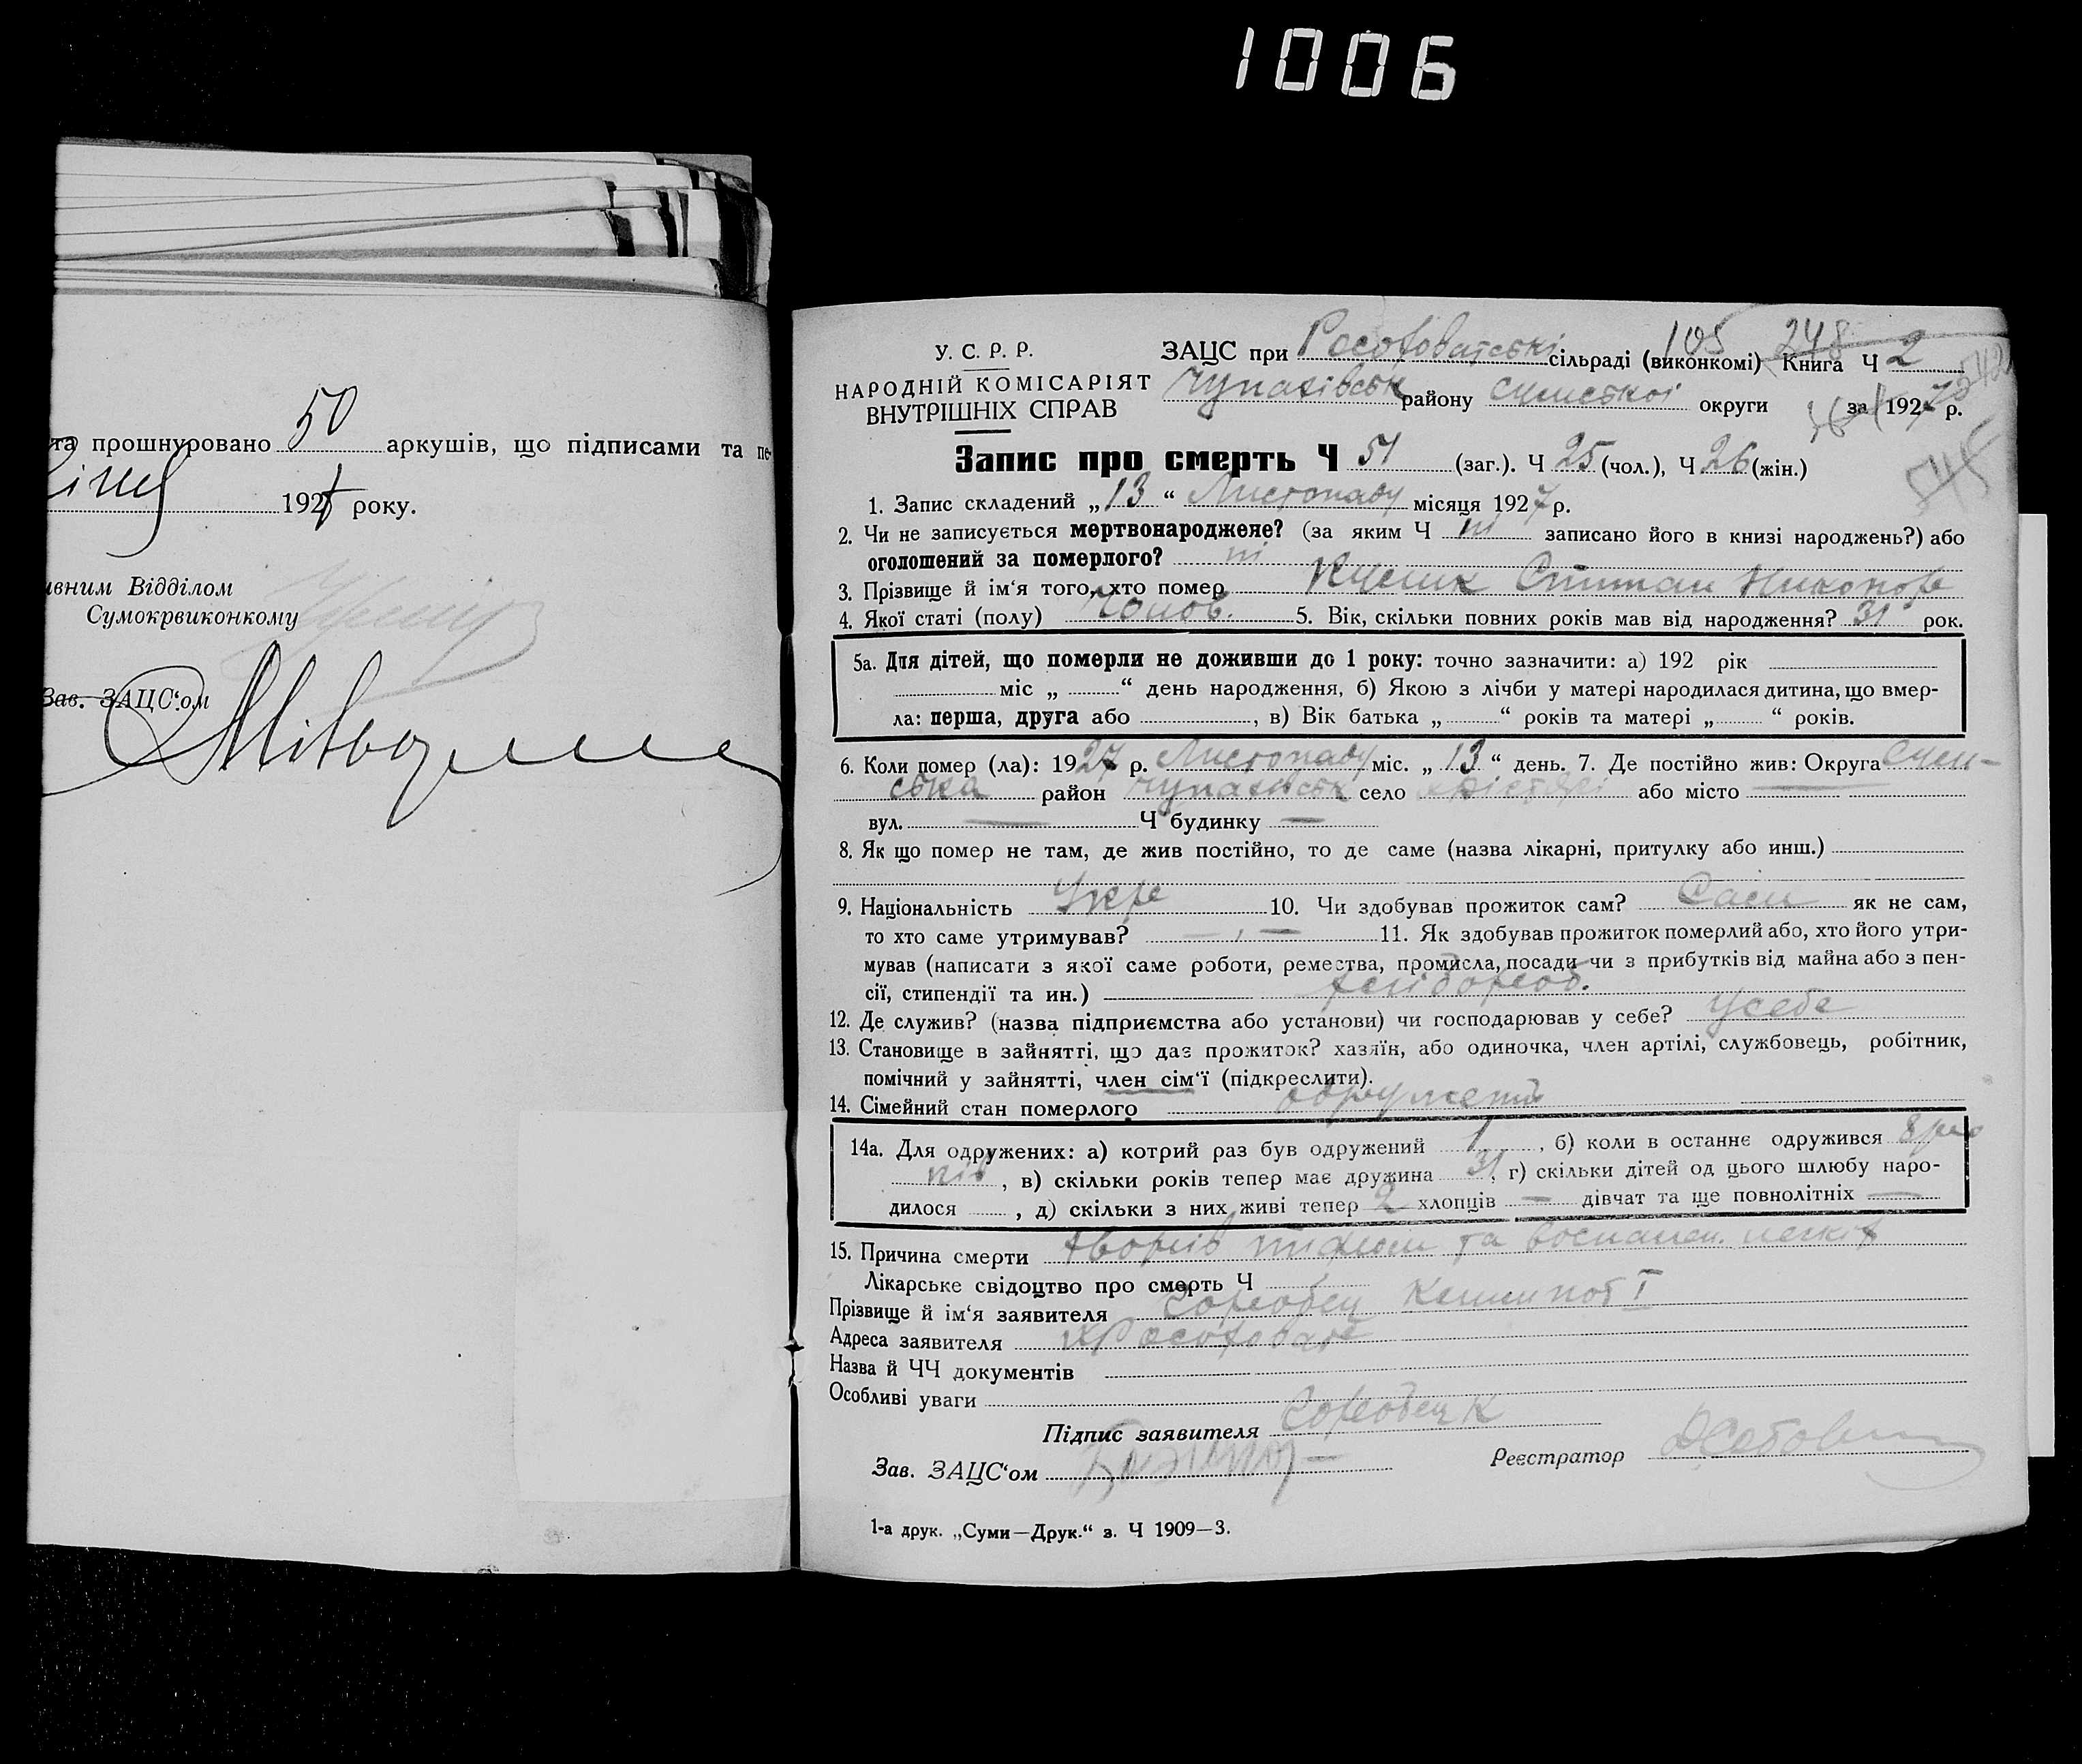 1006
та прошнуровано 50 аркушів, що підписами та пе-
1927 року.
ивним Відділом
Сумокрвиконкому
Зав. ЗАЦС'ом
У. С. Р. Р.
НАРОДНІЙ КОМІСАРІЯТ
ВНУТРІШНІХ СПРАВ
105 248
ЗАЦС при сільраді (виконкомі) Книга Ч 2
Чупахівськ району Сумської округи за 1927 р.
Запис про смерть Ч 51 (заг.). Ч 25 (чол.), Ч 26 (жін.)
545
1. Запис складений „13“ Листопаду місяця 1927 р.
2. Чи не записується мертвонароджене? (за яким Ч ні записано його в книзі народжень?) або
оголошений за померлого? ні
3. Прізвище й ім‘я того, хто помер
4. Якої статі (полу) Чолов. 5. Вік, скільки повних років мав від народження? 31 рок.
5а. Для дітей, що померли не доживши до 1 року: точно зазначити: а) 192 рік
міс „ “ день народження, б) Якою з лічби у матері народилася дитина, що вмер-
ла: перша, друга або , в) Вік батька „ “ років та матері „ “ років.
6. Коли помер (ла): 1927 р. Листопаду міс. „13“ день. 7. Де постійно жив: Округа Сум-
ська район Чупахівськ село або місто —
вул. — Ч будинку —
8. Як що помер не там, де жив постійно, то де саме (назва лікарні, притулку або инш.)
9. Національність Укре 10. Чи здобував прожиток сам? Сам як не сам,
то хто саме утримував? — 11. Як здобував прожиток померлий або, хто його утри-
мував (написати з якої саме роботи, ремества, промисла, посади чи з прибутків від майна або з пен-
сії, стипендії та ин.) хлібороб.
12. Де служив? (назва підприємства або установи) чи господарював у себе? У себе
13. Становище в зайнятті, що дає прожиток? хазяїн, або одиночка, член артілі, службовець, робітник,
помічний у зайнятті, член сім‘ї (підкреслити).
14. Сімейний стан померлого
14а. Для одружених: а) котрий раз був одружений 1, б) коли в останнє одружився 8 ро
ків, в) скільки років тепер має дружина 31, г) скільки дітей од цього шлюбу наро-
дилося , д) скільки з них живі тепер 2 хлопців — дівчат та ще повнолітніх —
15. Причина смерти хворів та воспален. легких
Лікарське свідоцтво про смерть Ч
Прізвище й ім‘я заявителя
Адреса заявителя
Назва й ЧЧ документів
Особливі уваги
Підпис заявителя
Зав. ЗАЦС‘ом Реєстратор
1-а друк. „Суми—Друк.“ з. Ч 1909—3.